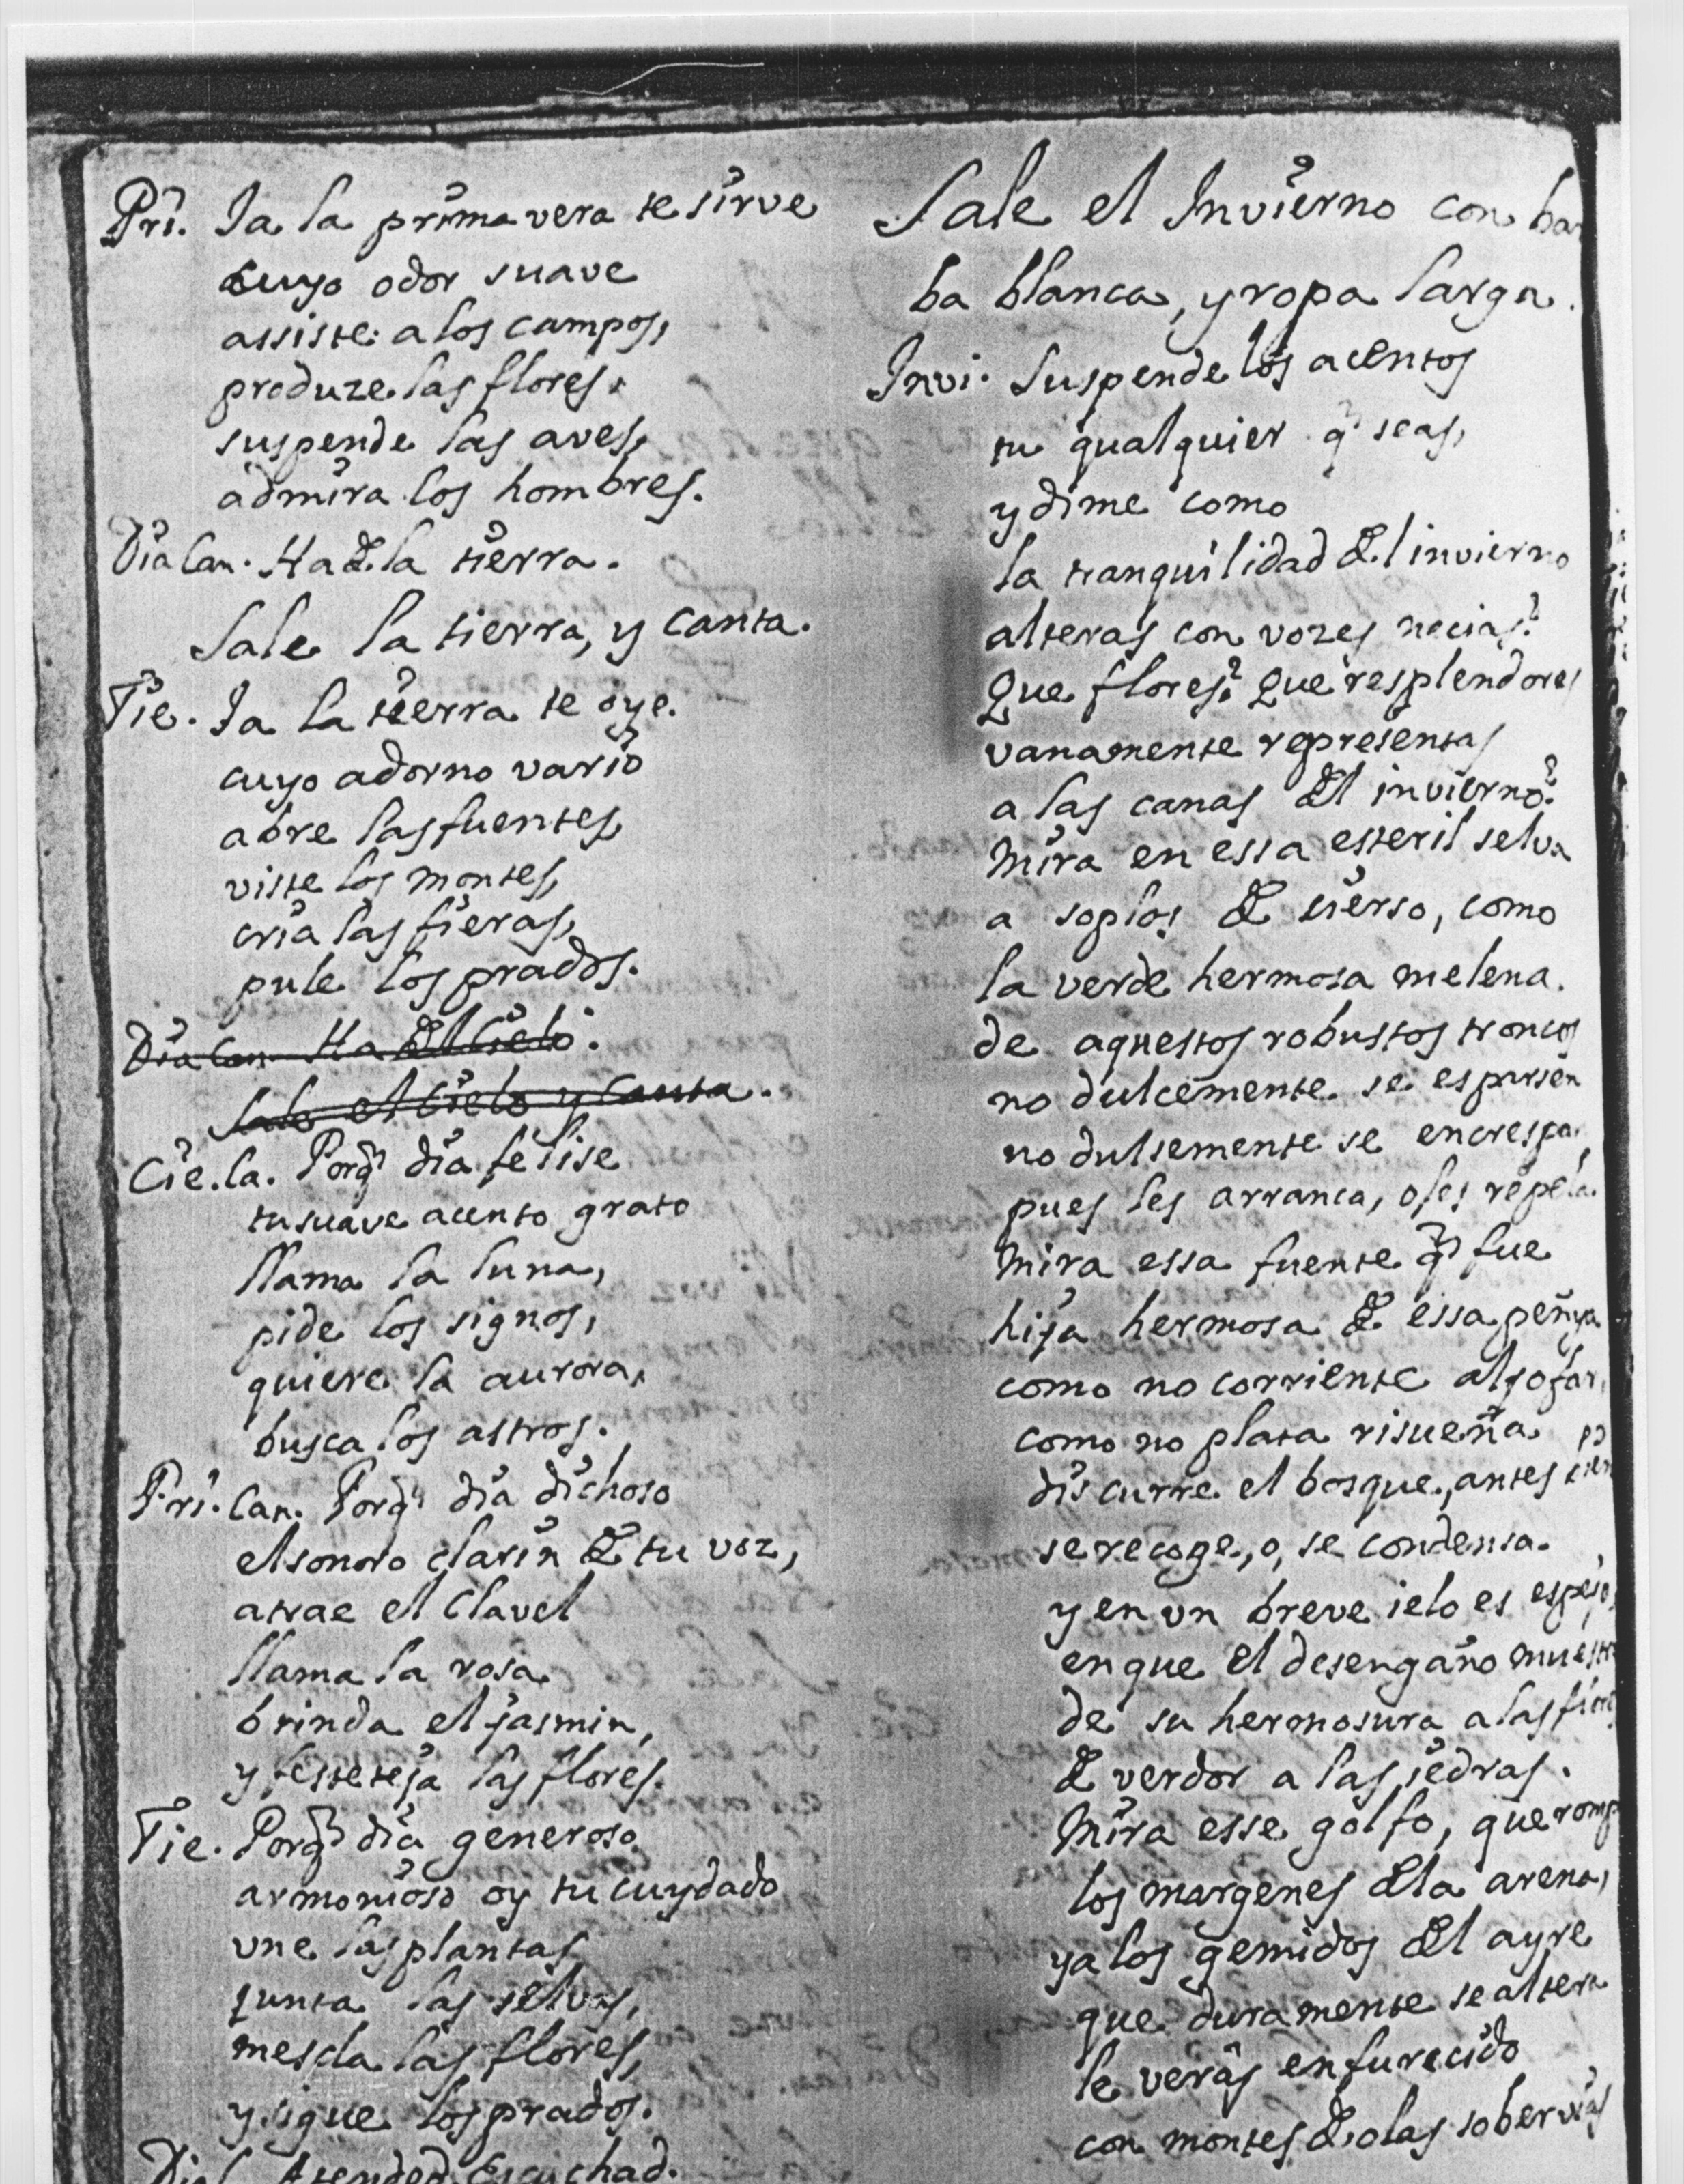 Pri. Ia la primavera te sirve
cuyo odor suave
assiste a los campos,
produze las flores,
suspende las aves,
admira los hombres.
Dia Can. Ha de la tierra.
Sale la tierra, y canta.
Tie. Ia la tierra te oye.
cuyo adorno vario
abre las fuentes,
viste los montes,
cria las fieras,
pule los prados.
Dia Can. Ha del Cielo.
Sale el Cielo y Canta.
Cie. Ca. Porq̃ dia felise
tu suave acento grato
llama la luna,
pide los signos,
quiere la aurora,
busca los astros.
Pri. Can. Porq̃ dia dichoso
el sonoro clarin de tu voz,
atrae el Clavel
llama la rosa
brinda el jasmin,
y festeteja las flores.
Tie. Porq̃ dia generoso
armonioso oy tu cuydado
vne las plantas
junta las selvas,
mescla las flores,
y sigue los prados.
Atended, Escuchad.
Sale el Invierno con bar
ba blanca, y ropa larga.
Invi. Suspende los acentos
tu qualquier q̃ seas,
y dime como
la tranquilidad del invierno
alteras con vozes necias?
Que flores? Que resplendores
vanamente representas
a las canas del invierno?
Mira en essa esteril selva
a soplos de cierso, como
la verde hermosa melena
de aquestos robustos troncos
no dulcemente se esparsen
no dulsemente se encrespan
pues les arranca, o les repela.
Mira essa fuente q̃ fue
hija hermosa de essa penya
como no corriente aljofar,
como no plata risueña
discurre el bosque, antes
se recoge, o, se condensa.
y en vn breve ielo es espejo,
en que el desengaño muestra
de su hermosura a las flores
de verdor a las iedras.
Mira esse golfo, que rompe
los margenes de la arena,
y a los gemidos del ayre
que duramente se altera
le veras enfurecido
con montes de olas sobervias